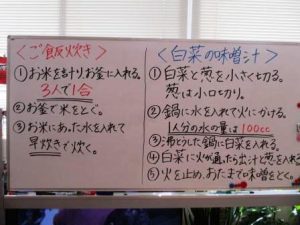 <ご飯炊き>
①お米を計りお釜に入れる。
3人で1合
②お釜で米をとぐ。
③お米にあった水を入れて
早炊きで炊く。
<白菜の味噌汁>
①白菜と葱を小さく切る。
葱は小口切り。
②鍋に水を入れて火にかける。
1人分の水の量は100cc
③沸とうした鍋に白菜を入れる。
④白菜に火が通ったら出汁と葱を入れる
⑤火を止め、おたまで味噌をとく。